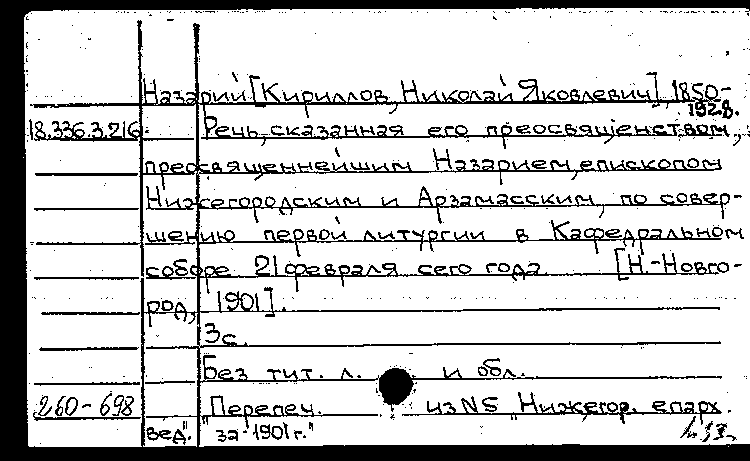 Назарий [Кириллов, Николай Яковлевич], 1850-
1928.
18.336.3.216. Речь, сказанная его преосвященством,
преосвященнейшим Назарием, епископом
Нижегородским и Арзамасским, по совер-
шению первой литургии в Кафедральном
соборе 21 февраля сего года [Н.-Новго-
род, 1901].
3с.
Без тит. л. и обл.
260-698 "Перепеч. из N5 "Нижегор. епарх.
вед." за 1901г."